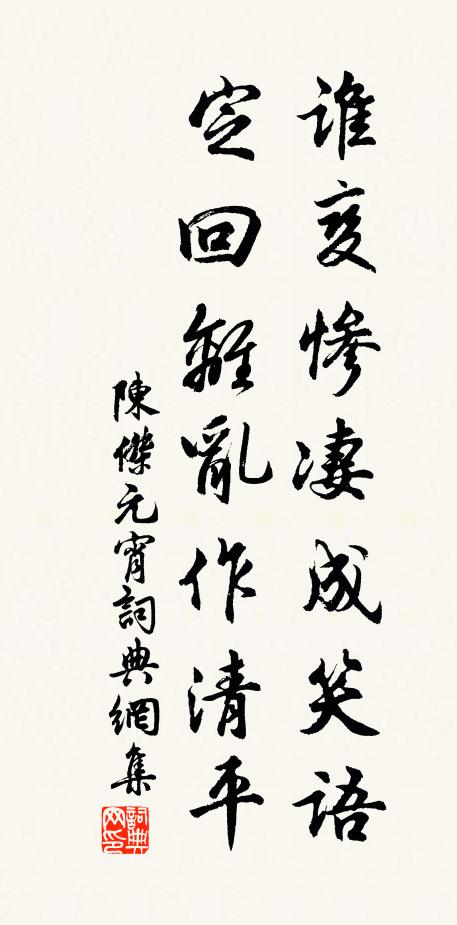 誰變慘凄成笑語
定回離亂作清平
陳傑元宵詞典網集
詞典网印